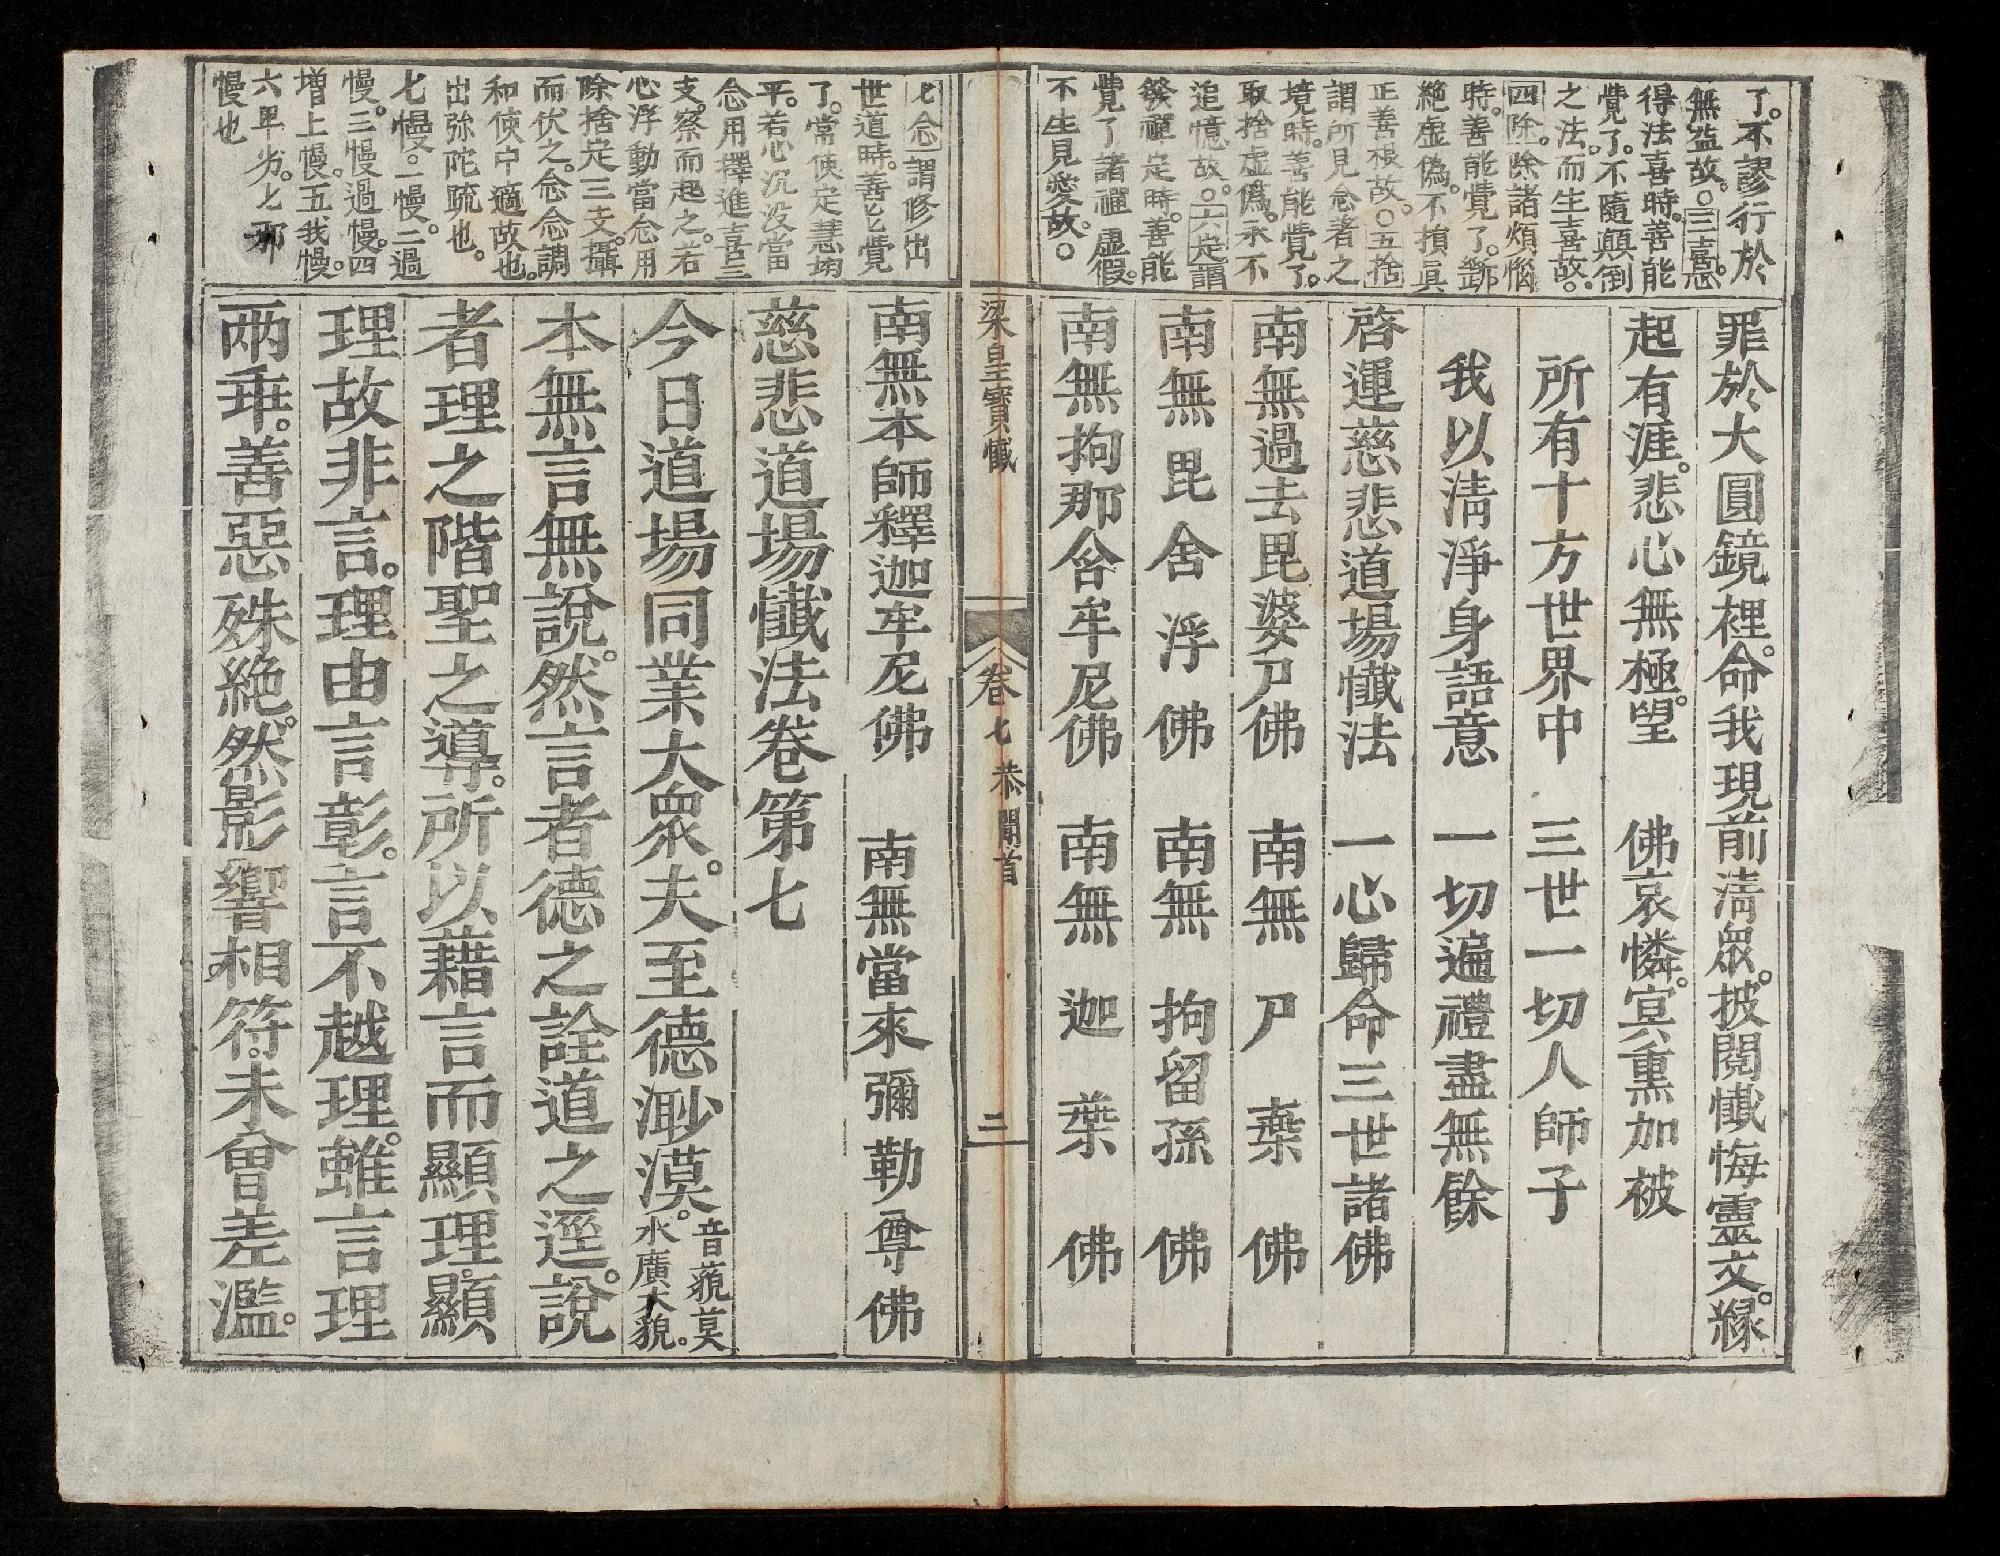 了。不謬行於
無益故。○三喜。忌
得法喜時。善能
覺了。不隨顛倒
之法。而生喜故。
四除。除諸煩惱
時。善能覺了。斷
絶虛偽。不損眞
正善根故。○五捨
謂所見念著之
境時。善能覺了。
取捨虛偽。永不
追憶故。○六定。謂
發禪定時。善能
覺了諸禪虛假。
不生見愛故。○
罪於大圓鏡裡。命我現前淸眾。披閱懺悔靈文。緣
起有涯。悲心無極。望　佛哀憐。冥熏加被
所有十方世界中　三世一切人師子
我以淸淨身語意　一切遍禮盡無餘
啓運慈悲道場懺法　一心歸命三世諸佛
南無過去毘婆尸佛　南無尸棄佛
南無毘舍浮佛　南無拘留孫佛
南無拘那含牟尼佛　南無迦葉佛
梁皇寶懺　卷七　恭聞首　三
七念謂修出
世道時。善能覺
了。常使定慧均
平。若心沉没當
念用擇進喜三
支。察而起之。若
心浮動當念用
除捨定三支。攝
而伏之。念念調
和使中適故也。
出弥陀䟽也。
七慢。一慢。二過
慢。三慢過慢。四
增上慢。五我慢。
六卑劣。七邪
慢也
南無本師釋迦牟尼佛　南無當來彌勒尊佛
慈悲道場懺法卷第七
今日道場同業大眾。夫至德渺漠。音藐莫水廣大貌。
本無言無說。然言者德之詮道之逕。說
者理之階聖之導。所以藉言而顯理。顯
理故非言。理由言彰。言不越理。雖言理
兩乖。善惡殊絶。然影響相符。未曾差濫。